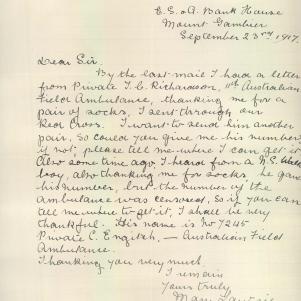 E.S. & A. Bank House
Mount Gambier
September 23rd, 1917.
Dear Sir,
By the last mail I had a letter
from Private T. C. Richardson, 11th Australian
Field Ambulance, thanking me for a
pair of socks, I sent through our
Red Cross. I want to send him another
pair. So could you give me his number,
if not, please tell me where I can get it
Also some time ago I heard from a N.S. Wales
boy, also thanking me for socks, he gave
his number, but the number of the
Ambulance was censored, so if you can
tell me where to get it, I shall be very
thankful. His name is No 7245
Private C. English, — Australian Field
Ambulance.
Thanking you very much
I remain
Yours truly
Mary